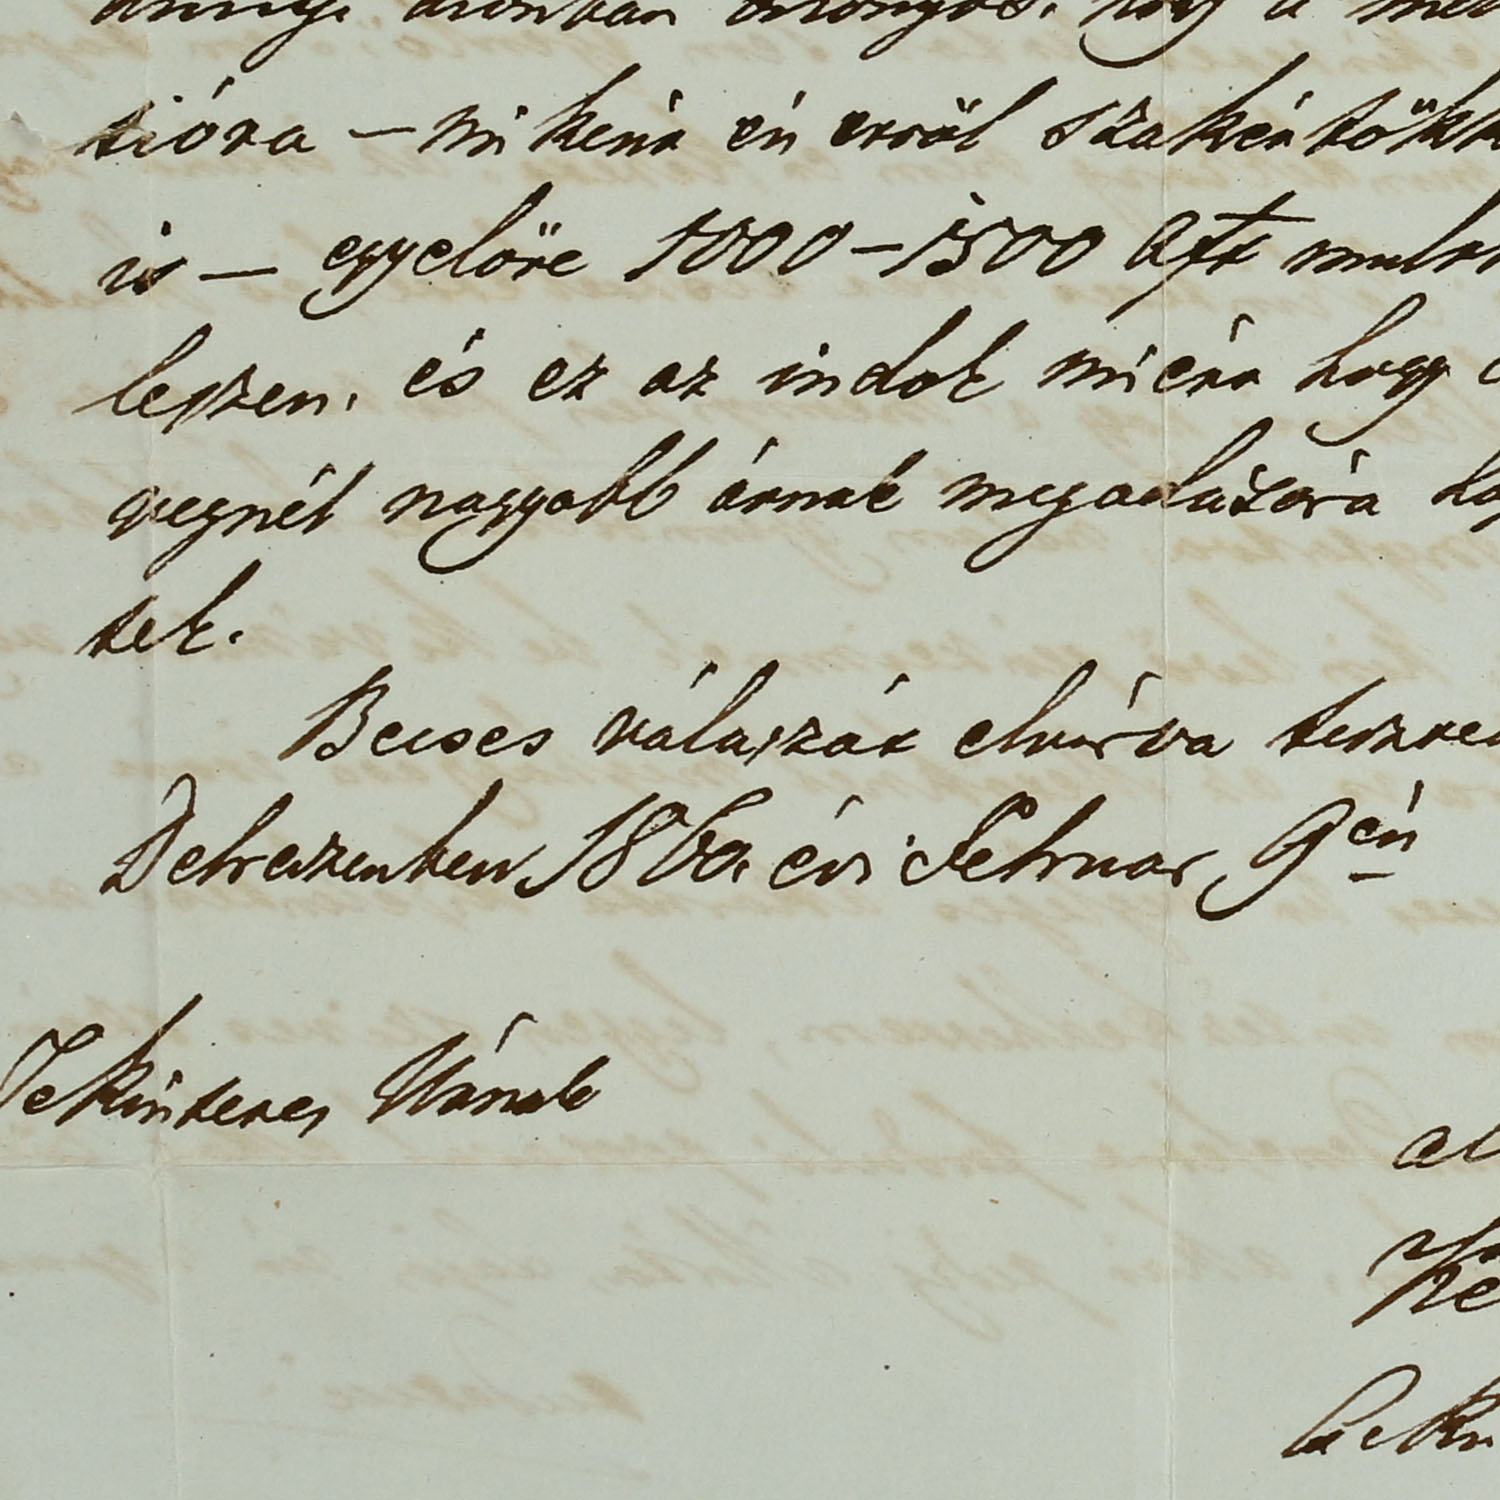 annyi azonban bizonyos, hogy a
tióra – miként én erről szakértőkk
is – egyelőre 1000–1500 aft mulh
leszen, és ez az indok miért hogy
vegnél nagyobb árnak megadására
tek.
Becses válaszát elvárva
Debreczenben 1860. évi Februar 9én
Tekintetes Úrnak
al